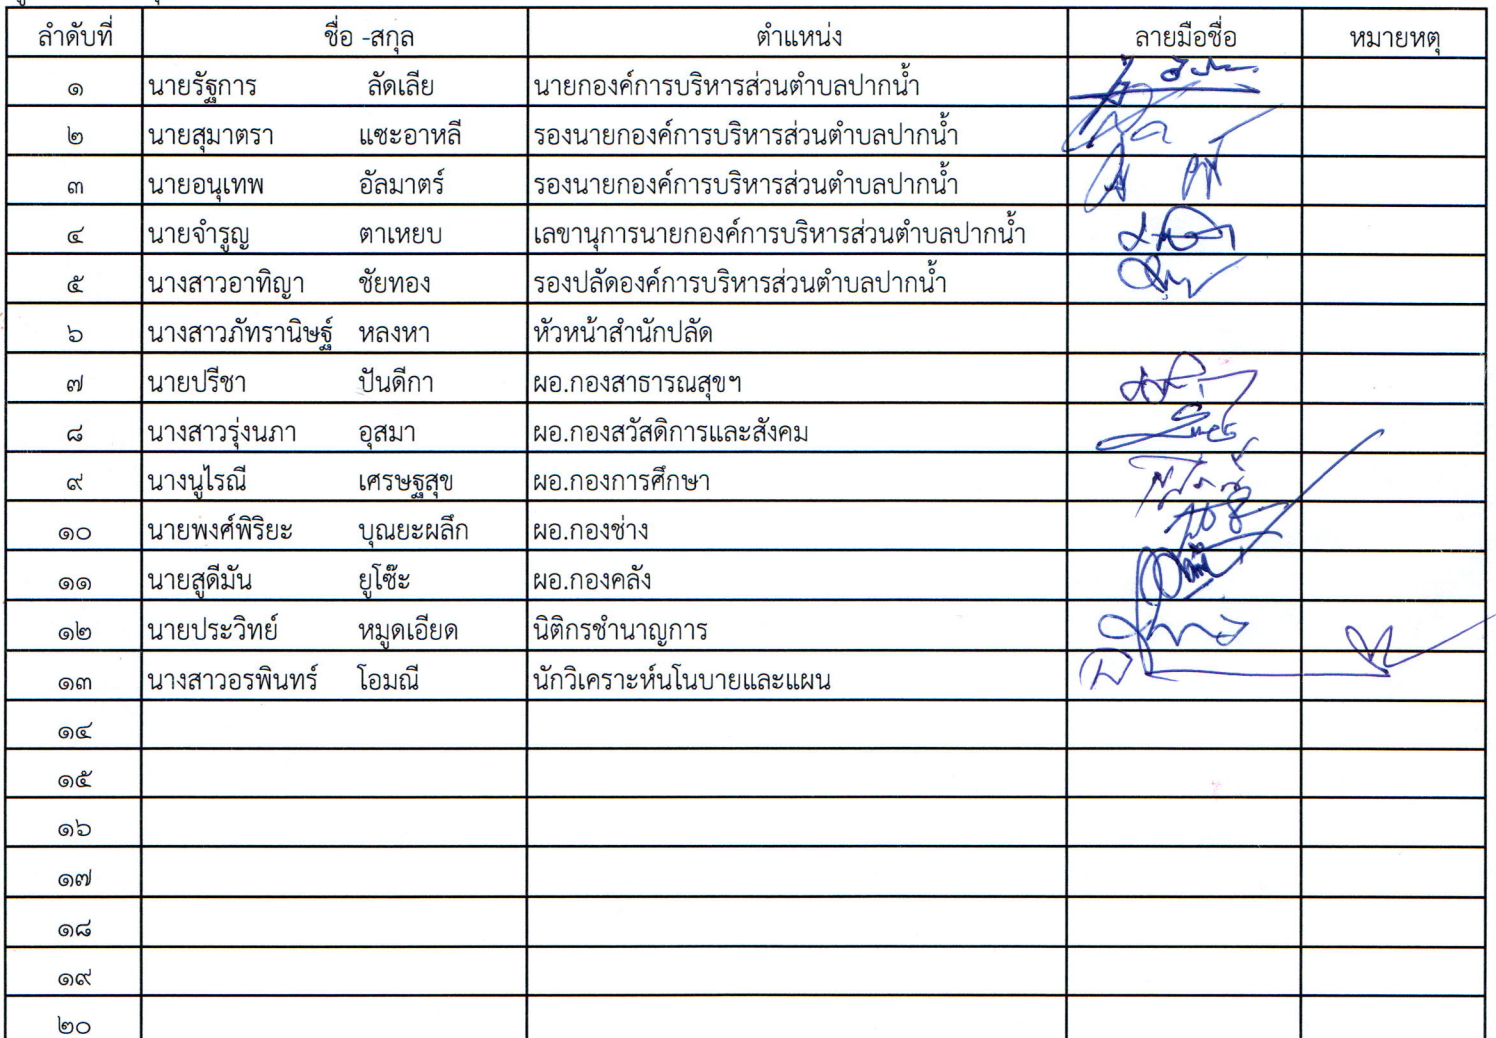 ลำดับที่ ชื่อ -สกุล ตำแหน่ง ลายมือชื่อ หมายเหตุ
๑ นายรัฐการ ลัดเลีย นายกองค์การบริหารส่วนตำบลปากน้ำ
๒ นายสุมาตรา แซะอาหลี รองนายกองค์การบริหารส่วนตำบลปากน้ำ
๓ นายอนุเทพ อัลมาตร์ รองนายกองค์การบริหารส่วนตำบลปากน้ำ
๔ นายจำรูญ ตาเหยบ เลขานุการนายกองค์การบริหารส่วนตำบลปากน้ำ
๕ นางสาวอาทิญา ชัยทอง รองปลัดองค์การบริหารส่วนตำบลปากน้ำ
๖ นางสาวภัทรานิษฐ์ หลงหา หัวหน้าสำนักปลัด
๗ นายปรีชา ปันดีกา ผอ.กองสาธารณสุขฯ
๘ นางสาวรุ่งนภา อุสมา ผอ.กองสวัสดิการและสังคม
๙ นางนูไรณี เศรษฐสุข ผอ.กองการศึกษา
๑๐ นายพงศ์พิริยะ บุณยะผลึก ผอ.กองช่าง
๑๑ นายสูดีมัน ยูโซ๊ะ ผอ.กองคลัง
๑๒ นายประวิทย์ หมูดเอียด นิติกรชำนาญการ
๑๓ นางสาวอรพินทร์ โอมณี นักวิเคราะห์นโนบายและแผน
๑๔
๑๕
๑๖
๑๗
๑๘
๑๙
๒๐